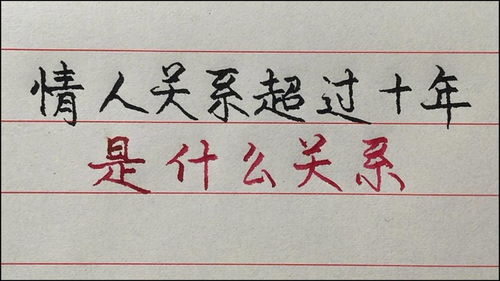 情人关系超过十年
是什么关系